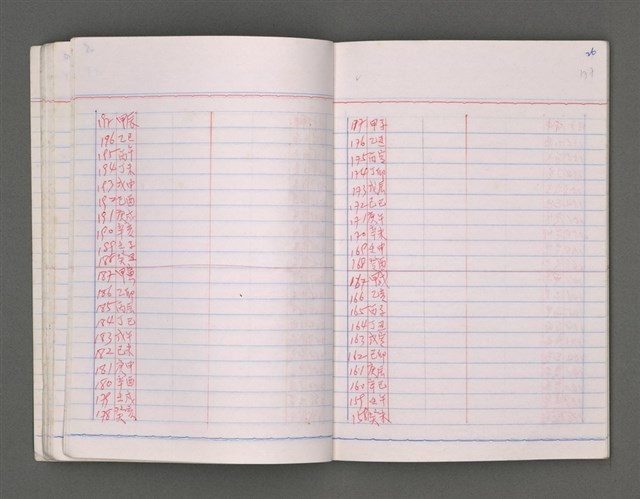 197 甲辰
196 乙巳
195 丙午
194 丁未
193 戊申
192 己酉
191 庚戌
190 辛亥
189 壬子
188 癸丑
187 甲寅
186 乙卯
185 丙辰
184 丁巳
183 戊午
182 己未
181 庚申
180 辛酉
179 壬戌
178 癸亥
26
177 甲子
176 乙丑
175 丙寅
174 丁卯
173 戊辰
172 己巳
171 庚午
170 辛未
169 壬申
168 癸酉
167 甲戌
166 乙亥
165 丙子
164 丁丑
163 戊寅
162 己卯
161 庚辰
160 辛巳
159 壬午
158 癸未